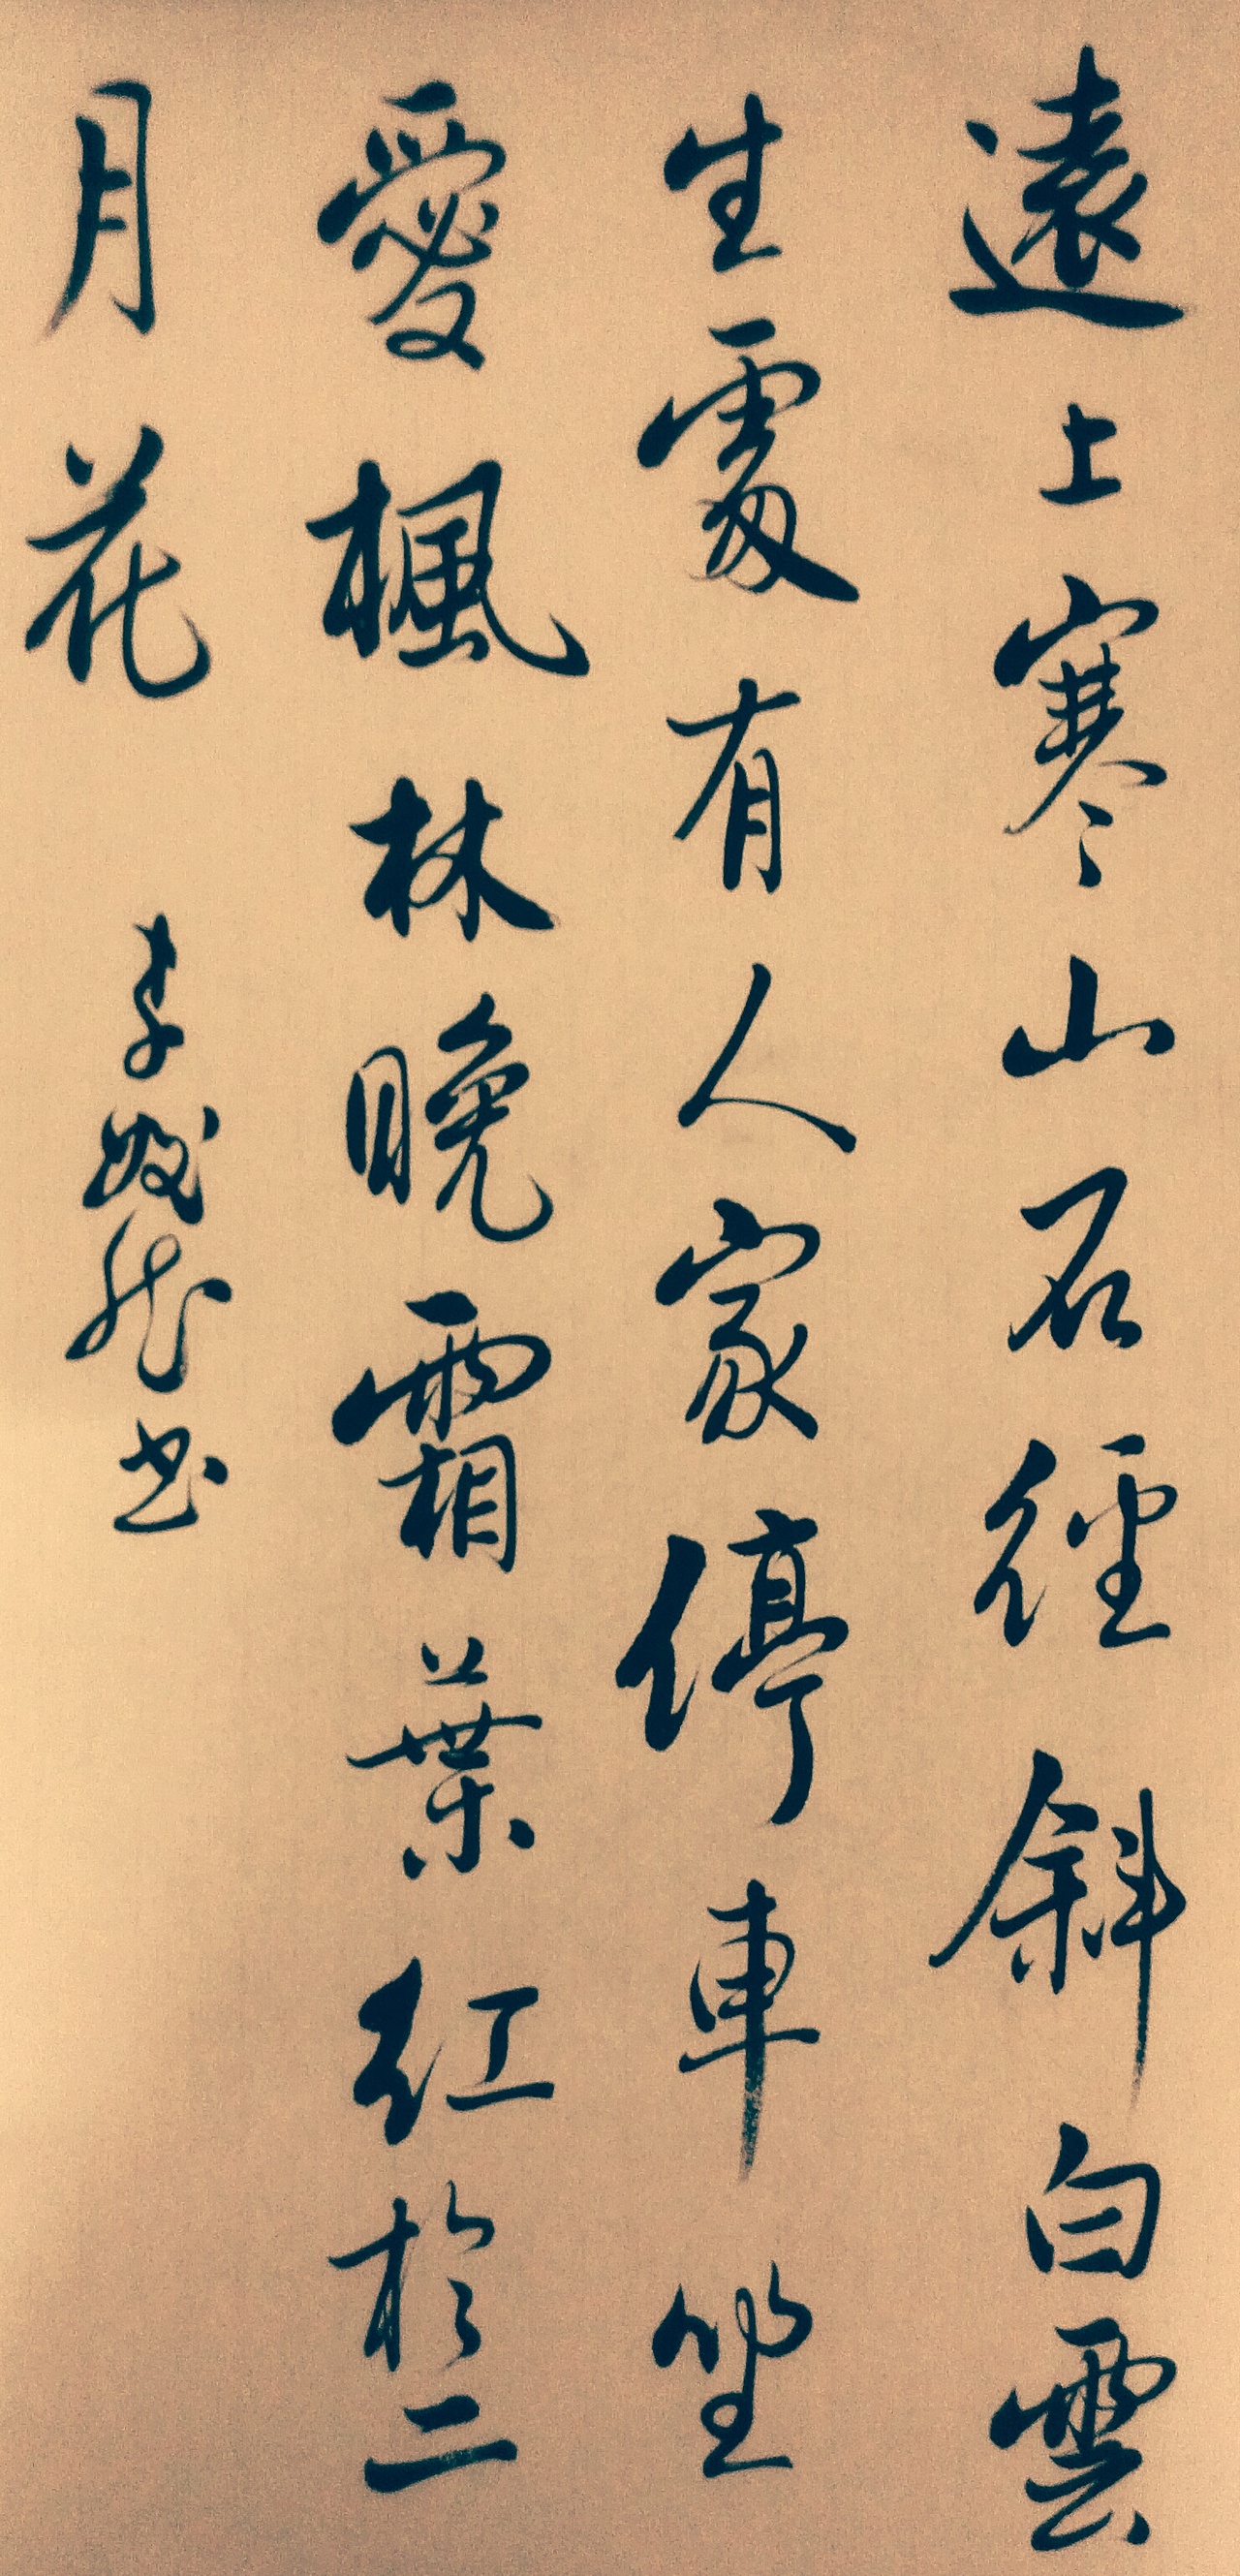 遠上寒山石徑斜白雲
生處有人家停車坐
愛楓林晚霜葉紅於二
月花
李 书